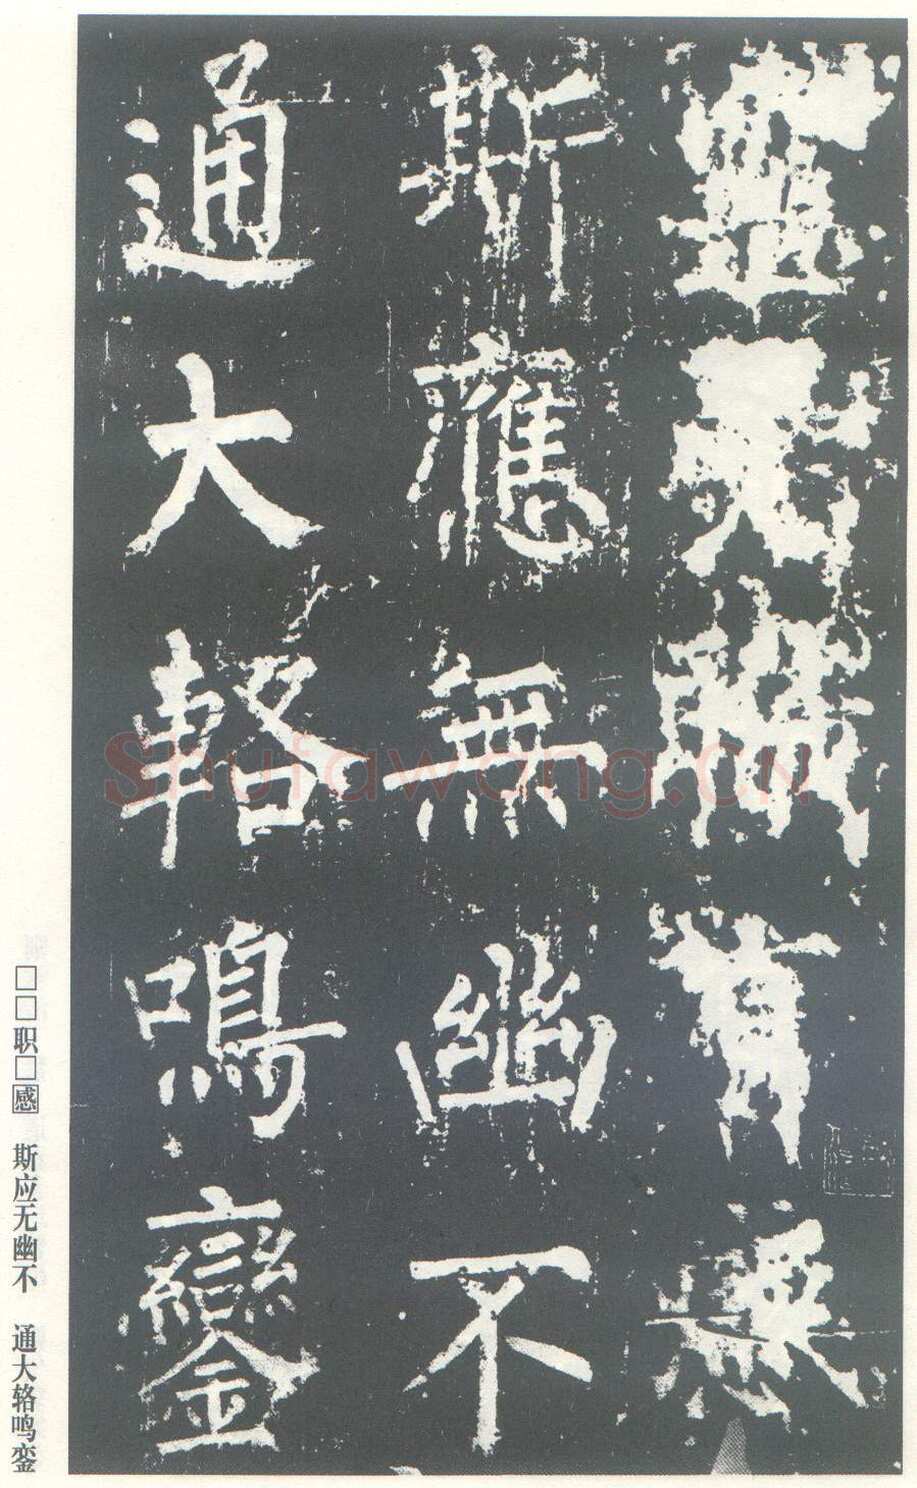 斯應無幽不
通大輅鳴鑾
□□职□感 斯应无幽不 通大辂鸣銮
Shufawang.CN